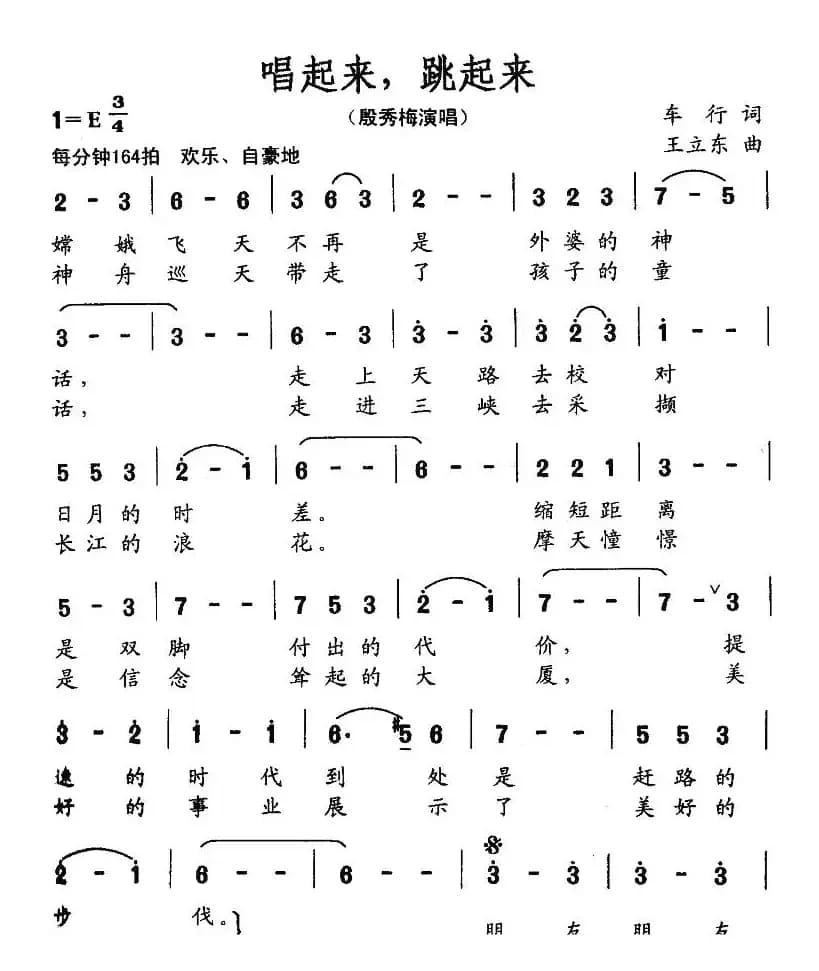 唱起来，跳起来
1=E 3/4
（殷秀梅演唱）
车行 词
王立东 曲
每分钟164拍 欢乐、自豪地
2 - 3 | 6 - 6 | 3 6 3 | 2 - - | 3 2 3 | 7 - 5 |
嫦娥飞天不再是外婆的神
神舟巡天带走了孩子的童
3 - - | 3 - - | 6 - 3 | 3̇ - 3̇ | 3̇ 2̇ 3̇ | 1̇ - - |
话，走上天路去校对
话，走进三峡去采撷
5 5 3 | 2̇ - 1̇ | 6 - - | 6 - - | 2 2 1 | 3 - - |
日月的时差。缩短距离
长江的浪花。摩天憧憬
5 - 3 | 7 - - | 7 5 3 | 2̇ - 1̇ | 7 - - | 7 - ∨ 3 |
是双脚付出的代价，提
是信念耸起的大厦，美
3̇ - 2̇ | 1̇ - 1̇ | 6· #5 6 | 7 - - | 5 5 3 |
速的时代到处是赶路的
好的事业展示了美好的
2̇ - 1̇ | 6 - - | 6 - - | 3̇ - 3̇ | 3̇ - 3̇ |
步伐。朋友朋友